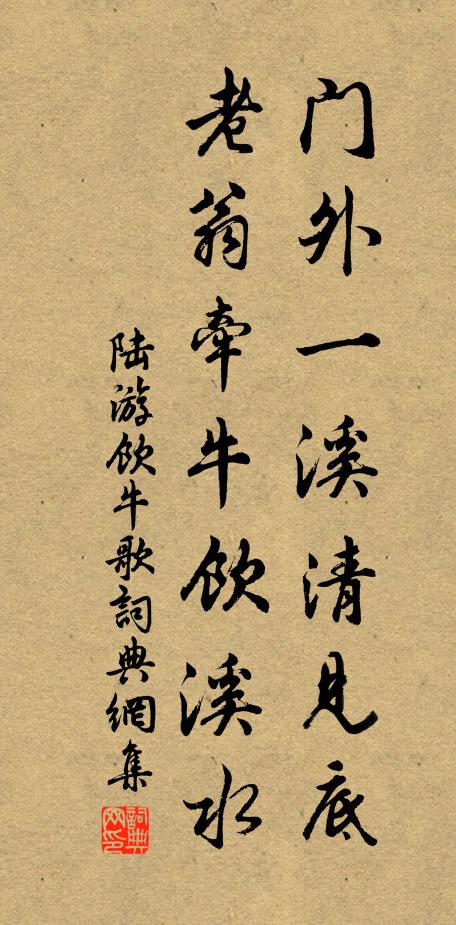 门外一溪清见底
老翁牵牛饮溪水
陆游饮牛歌詞典網集
詞典网印